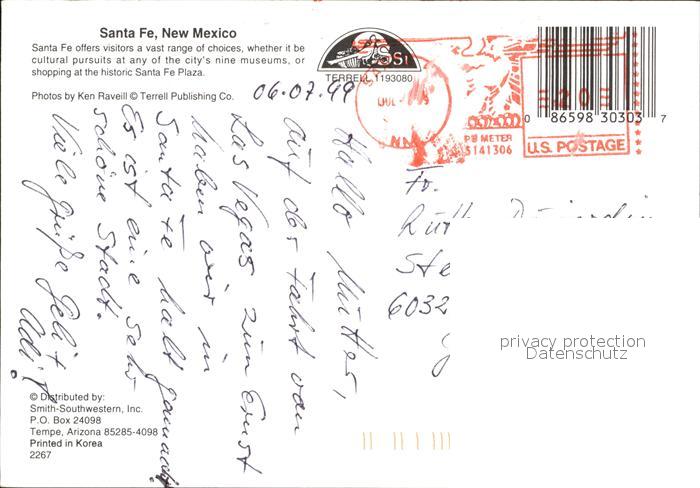 Santa Fe, New Mexico
Santa Fe offers visitors a vast range of choices, whether it be
cultural pursuits at any of the city's nine museums, or
shopping at the historic Santa Fe Plaza.
Photos by Ken Raveill © Terrell Publishing Co.
TERRELL 1193080
PB METER
5141306
U.S. POSTAGE
0 86598 30303 7
06.07.99
Hallo Mutter,
auf der Fahrt von
Las Vegas zum
haben wir in
Santa Fe halt gemacht.
Es ist eine sehr
schöne Stadt.
Viele Grüße
Adi
Fr.
Ste
6032
privacy protection
Datenschutz
© Distributed by:
Smith-Southwestern, Inc.
P.O. Box 24098
Tempe, Arizona 85285-4098
Printed in Korea
2267